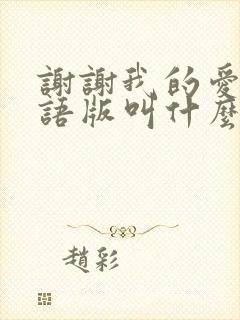 謝謝我的愛
語版叫什麼
趙彩